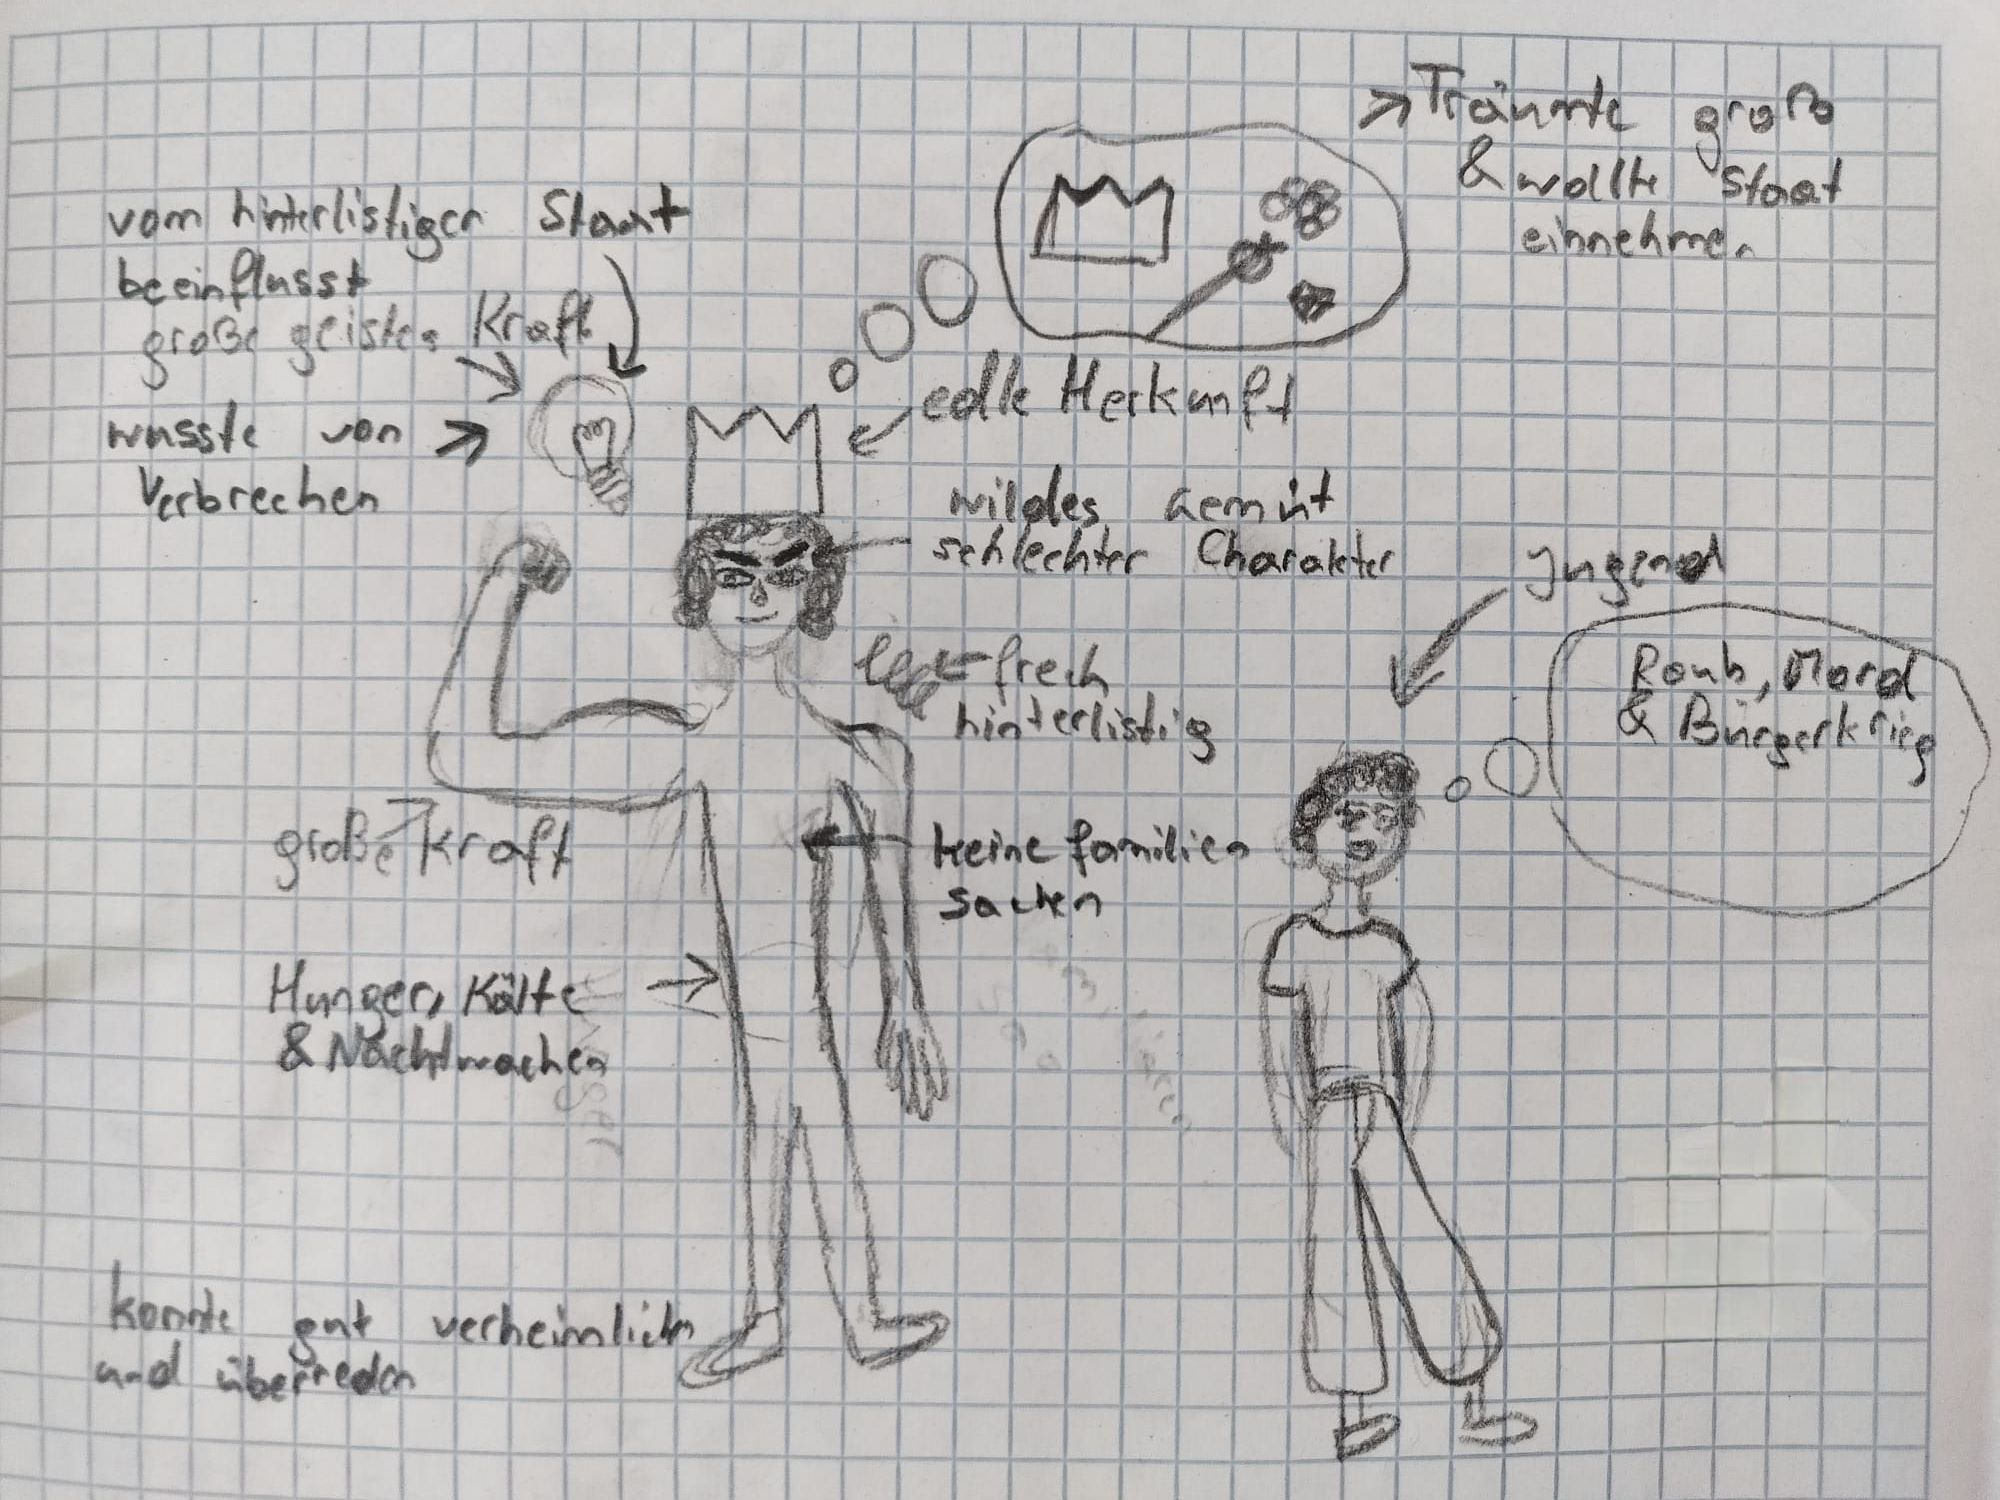 → Träumte groß
& wollte Staat
einnehmen
vom hinterlistigen Staat
beeinflusst
große geistes Kraft
wusste von
Verbrechen
edle Herkunft
wildes Gemüt
schlechter Charakter
frech
hinterlistig
große Kraft
keine familien
sachen
Hunger, Kälte
& Nachtwachen
konnte gut verheimlichen
und überreden
Jugend
Raub, Mord
& Bürgerkrieg